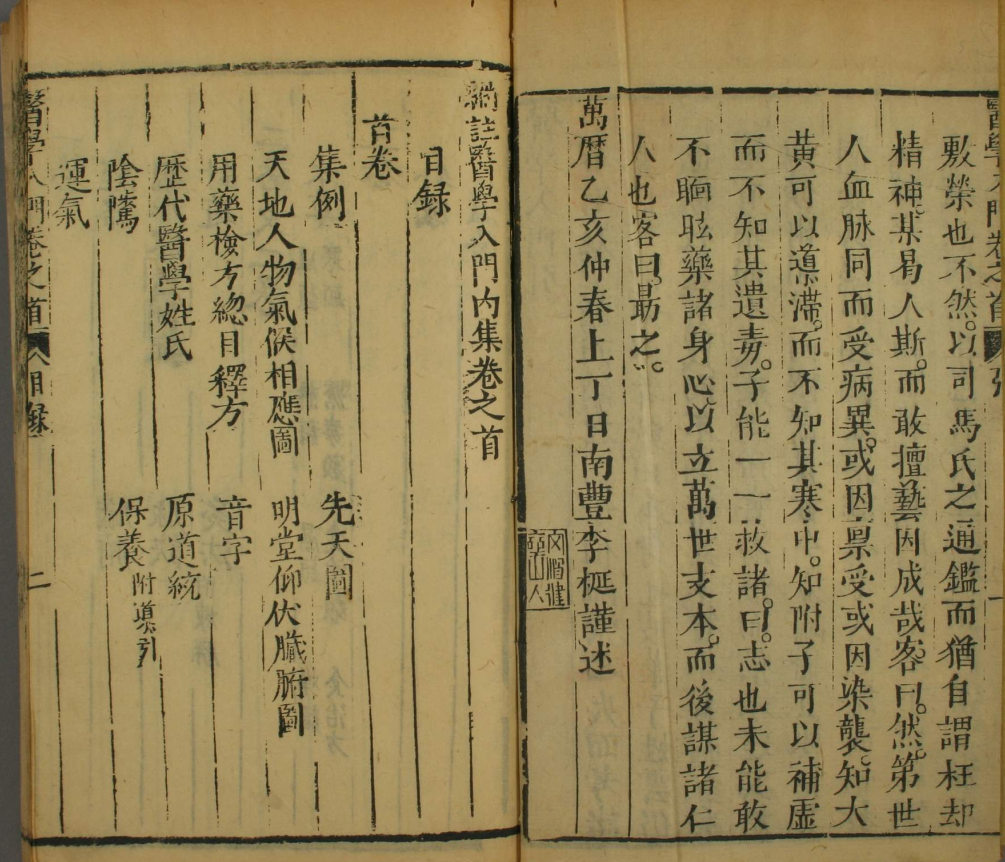 醫學入門卷之首 一
敷榮也不然。以司馬氏之通鑑而猶自謂枉却
精神。某曷人斯。而敢擅藝因成哉。客曰。然。第世
人血脉同而受病異。或因禀受或因染襲。知大
黃可以導滯。而不知其寒中。知附子可以補虛
而不知其遺毒。子能一一救諸。曰。志也未能敢
不瞑眩藥諸身心。以立萬世支本。而後謀諸仁
人也客曰。勗之。
萬曆乙亥仲春上丁日南豐李梴謹述
編註醫學入門內集卷之首
目録
首卷
集例 先天圖
天地人物氣候相應圖 明堂仰伏臟腑圖
用藥檢方總目釋方 音字
歷代醫學姓氏 原道統
陰隲 保養附導引
運氣
醫學入門卷之首 目録 二